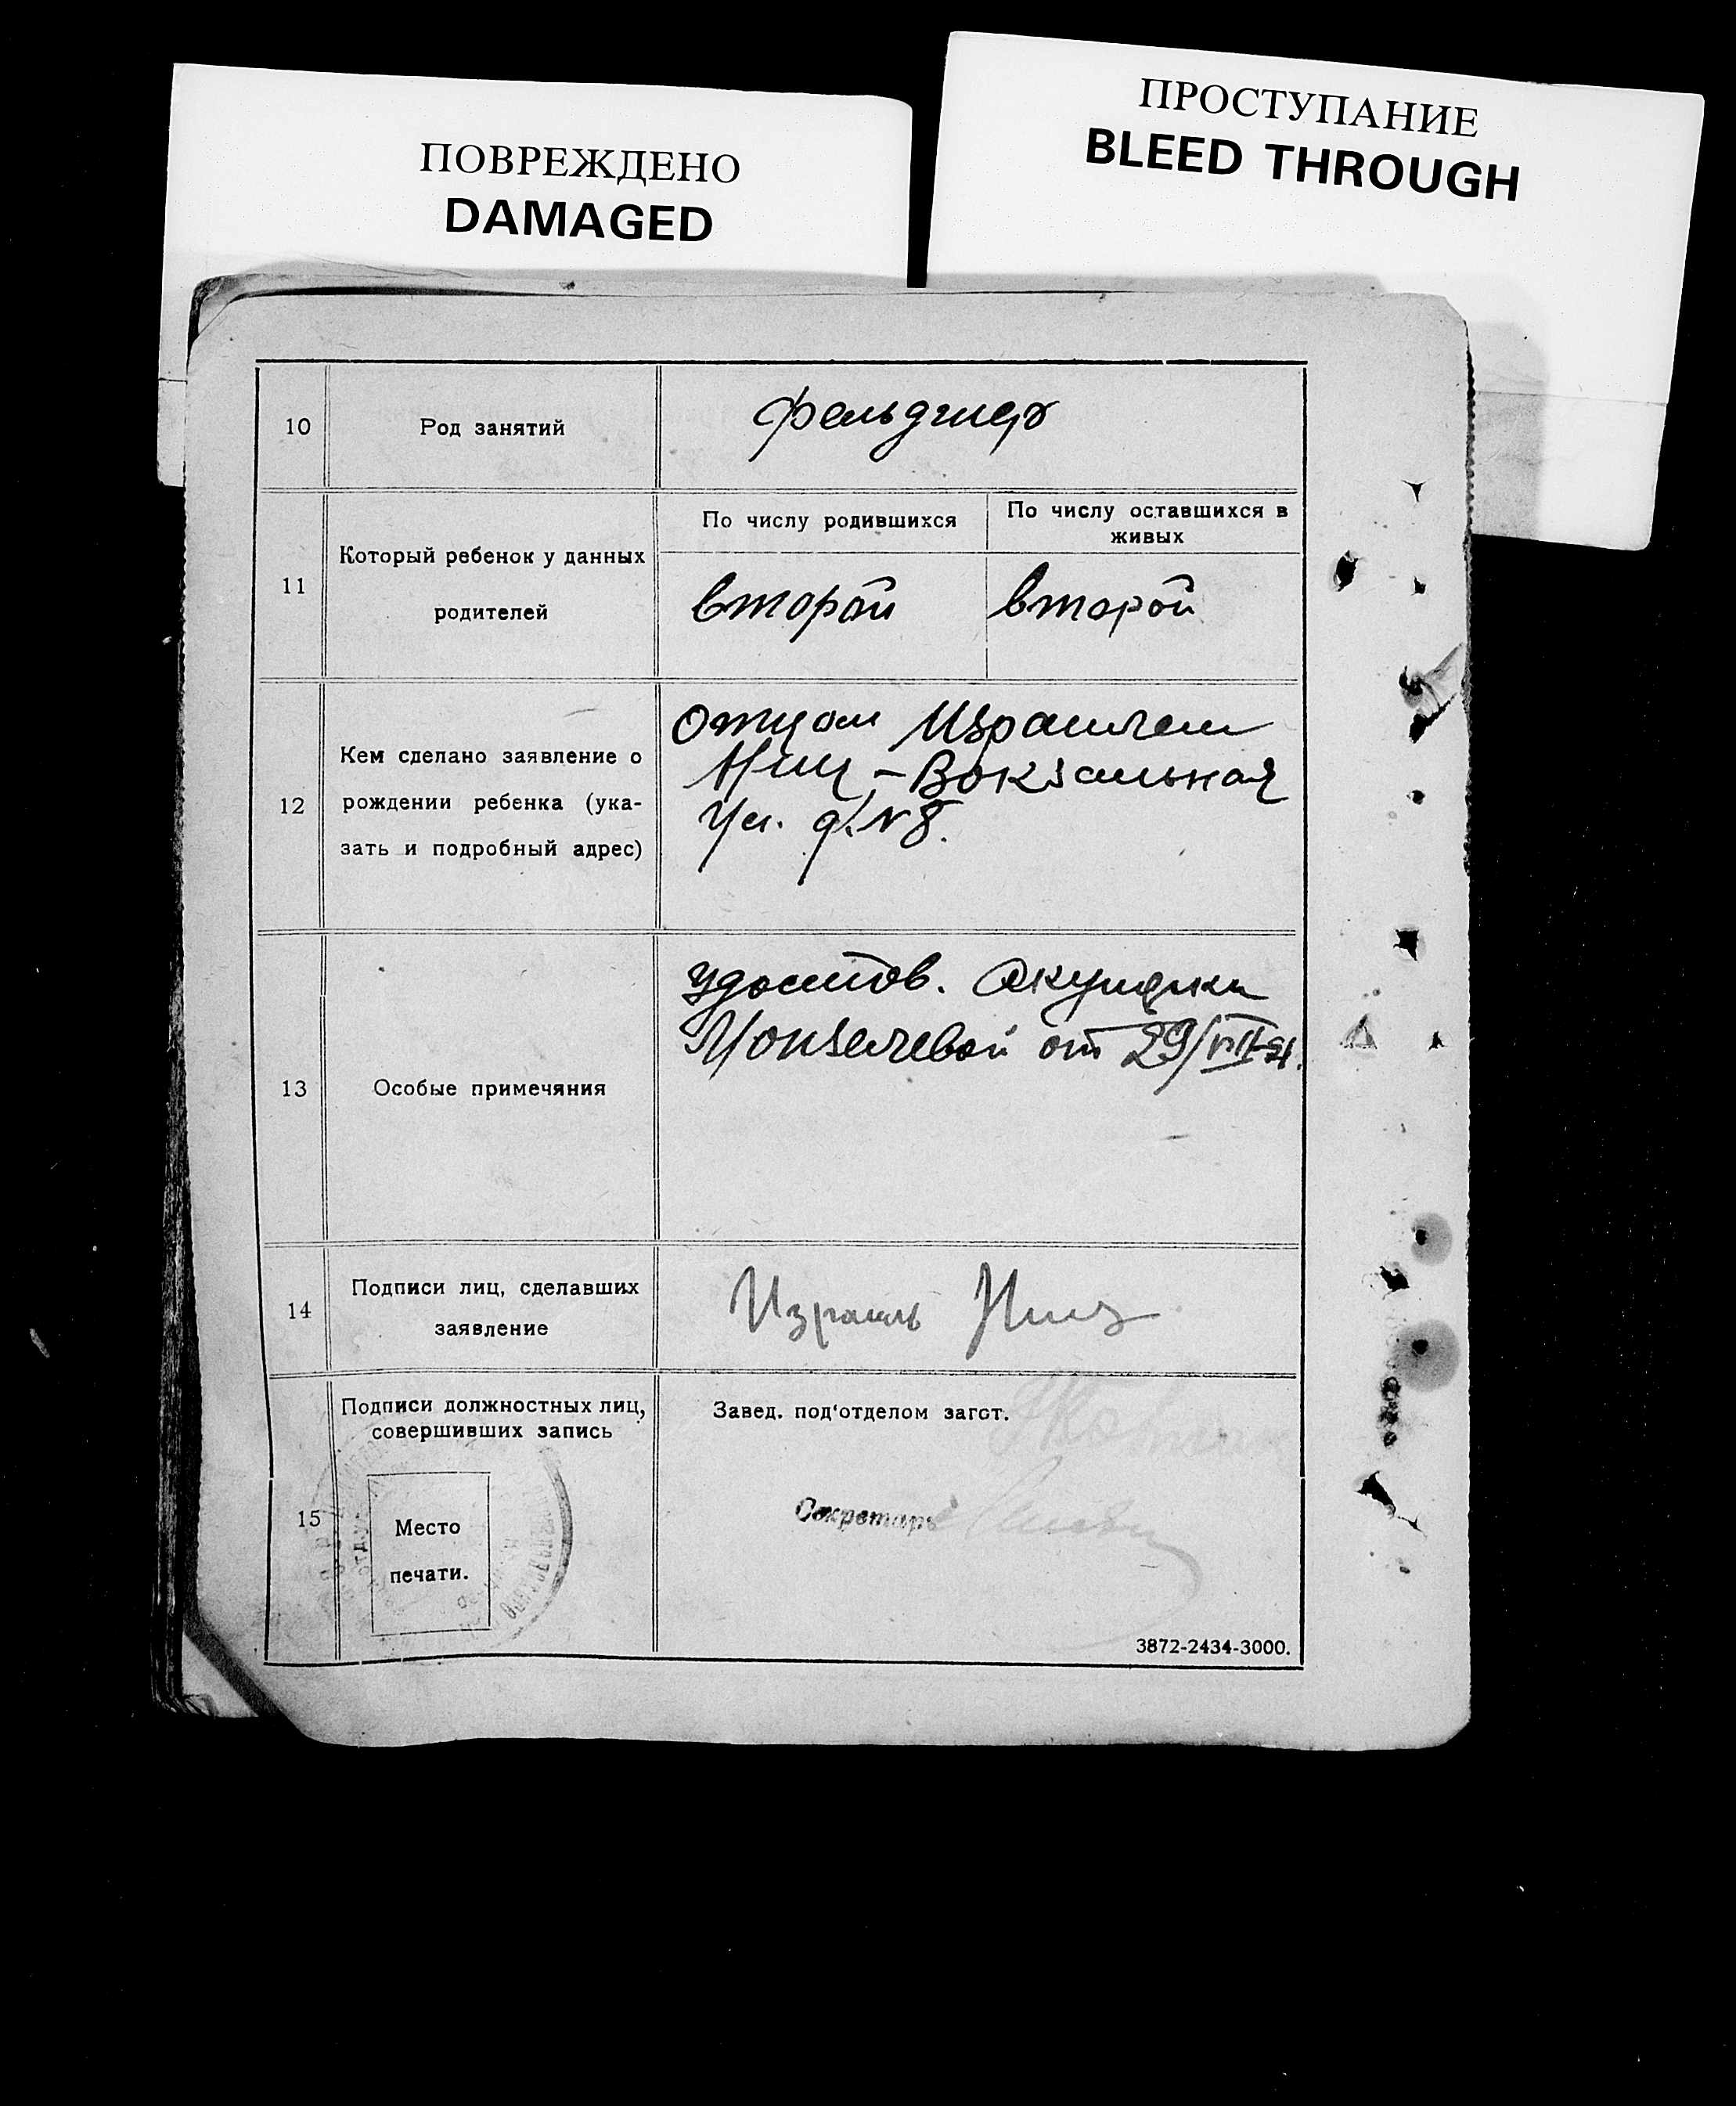 ПОВРЕЖДЕНО
DAMAGED
ПРОСТУПАНИЕ
BLEED THROUGH
10
Род занятий
фельдшер
11
Который ребенок у данных
родителей
По числу родившихся
По числу оставшихся в
живых
второй
второй
12
Кем сделано заявление о
рождении ребенка (ука-
зать и подробный адрес)
Отцом Израилем
Ниц – Вокзальная
ул. д. № 8.
13
Особые примечяния
удостов. Акушерки
от 29/VIII
14
Подписи лиц, сделавших
заявление
Израиль Ниц
15
Подписи должностных лиц,
совершивших запись
Место
печати.
Завед. под'отделом загот.
Секретарь
3872-2434-3000.